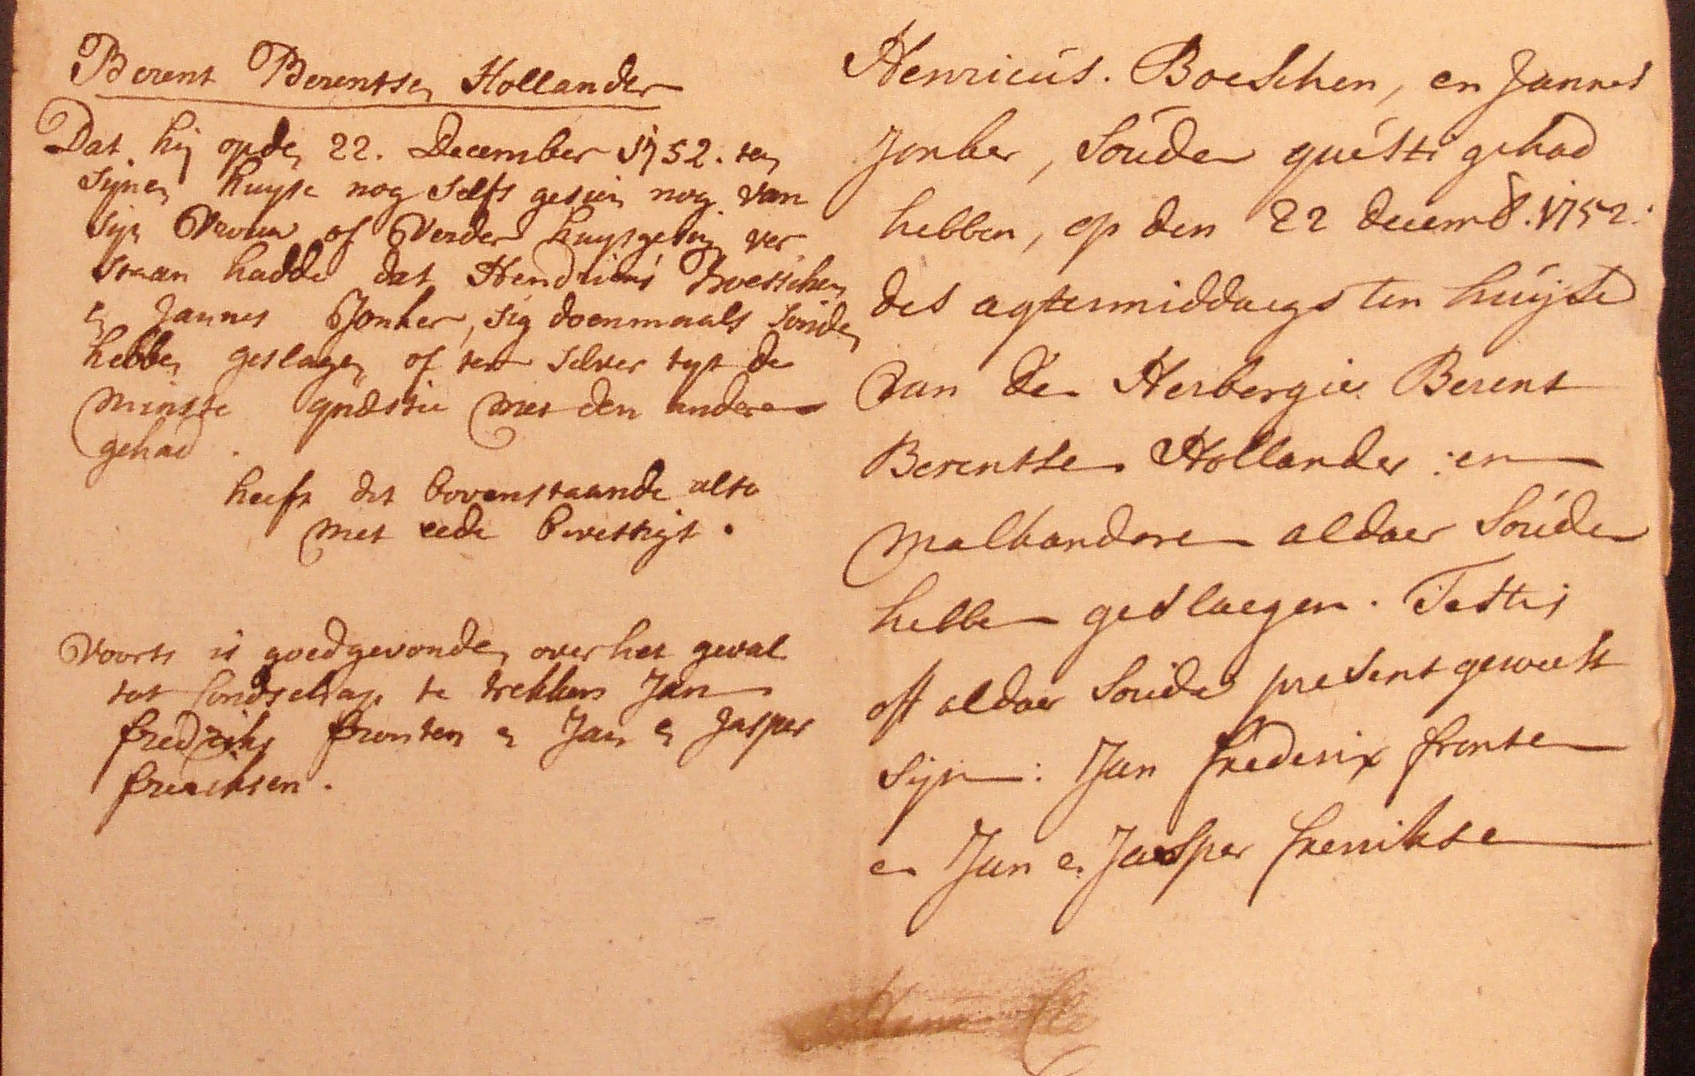 Berent Berentsen Hollander
Dat hij opden 22. December 1752. ten
sijnen huyse nog selfs gesien nog van
sijn Vrouw of Verder huysgesin ver
staan hadde dat Hendricus Boesschen
en Jannes Jonker, sig doenmaals souden
hebben geslagen of ten selver tyt de
minste quæstie met den anderen
gehad.
heeft dit bovenstaande also
met eede bevestigt.
Voorts is goedgevonden over het geval
tot Landschap te trekken Jan
fredriks fronten en Jan en Jasper
frericksen.
Henricus. Boeschen, en Jannes
Jonker, souden questi gehad
hebben, op den 22 decemb. 1752.
des agtermiddaegs ten huijse
van de Herbergier Berent
Berentsen Hollander: en
malkanderen aldaer souden
hebben geslaegen. Testis
oft aldaer souden present geweest
sijn: Jan frederix fronten
en Jan en Jasper freriksen